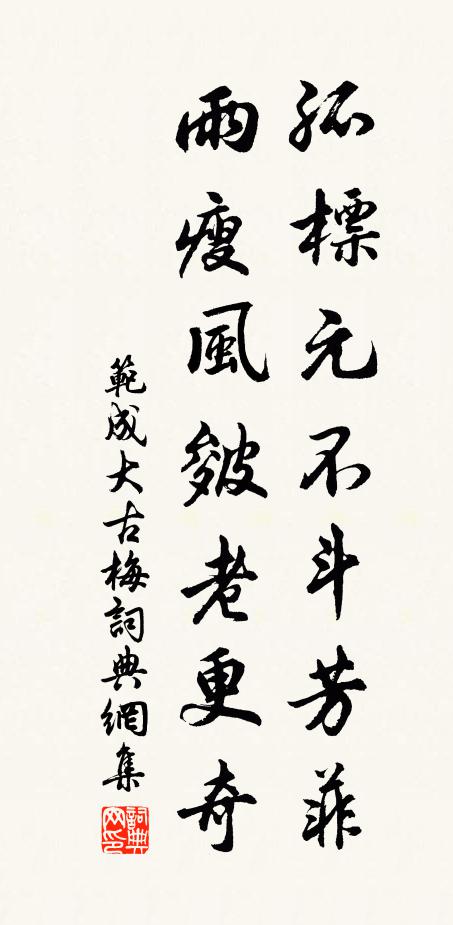 孤標元不斗芳菲
雨瘦風皴老更奇
範成大古梅詞典網集
詞典网印